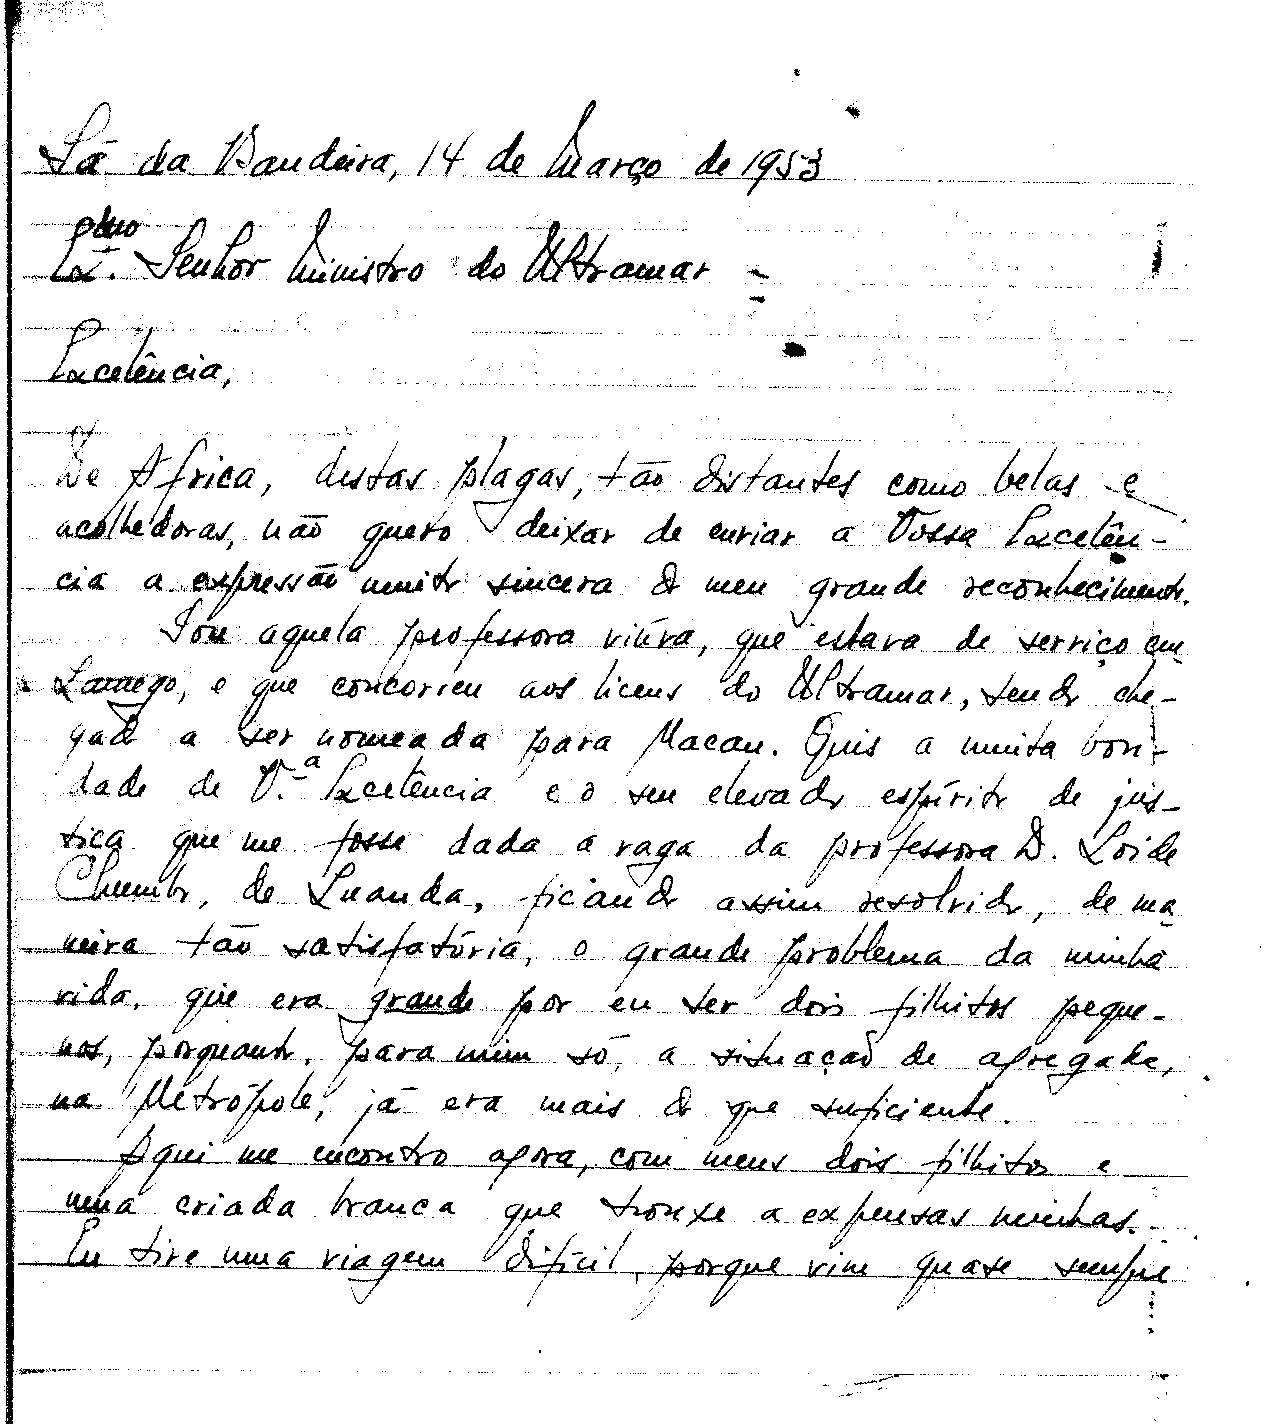 Sá da Bandeira, 14 de Março de 1953
Exmo. Senhor Ministro do Ultramar
Excelência,
De África, destas plagas, tão distantes como belas e
acolhedoras, não quero deixar de enviar a Vossa Excelên-
cia a expressão muito sincera do meu grande reconhecimento.
Sou aquela professora viúva, que estava de serviço em
Lamego, e que concorreu aos liceus do Ultramar, tendo che-
gado a ser nomeada para Macau. Quis a muita bon-
dade de V.ª Excelência e o seu elevado espírito de jus-
tiça que me fosse dada a vaga da professora D. Loide
Chumbo, de Luanda, ficando assim resolvido, de ma
neira tão satisfatória, o grande problema da minha
vida, que era grande por eu ter dois filhitos peque-
nos, porquanto, para mim só, a situação de agregada,
na Metrópole, já era mais do que suficiente.
Aqui me encontro agora, com meus dois filhitos e
uma criada branca que trouxe a expensas minhas.
Eu tive uma viagem difícil, porque vim quase sempre